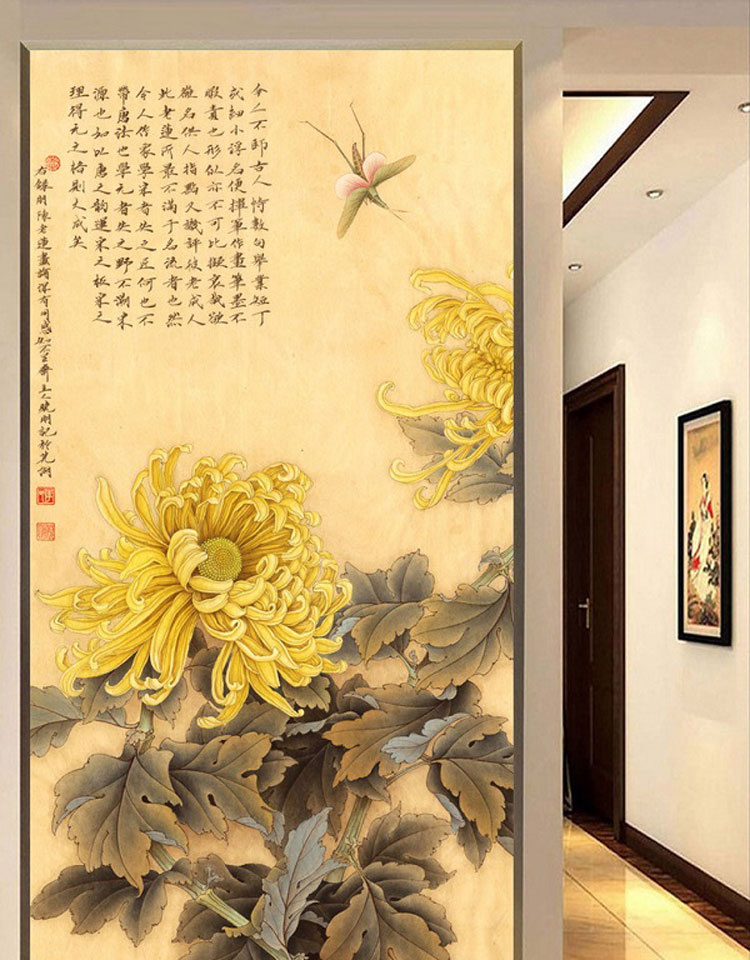 今人不師古人恃數句舉業餖丁
或細小浮名便揮筆作畫筆墨不
暇責也形似亦不可比擬哀哉欲
微名供人指點又譏評彼老成人
此老蓮所最不滿于名流者也然
今人作家學宋者失之匠何也不
帶唐法也學元者失之野不溯宋
源也如以唐之韻運宋之板宋之
理得元之格則大成矣
右錄明陳老蓮畫論深有同感 齋主人曉明記於